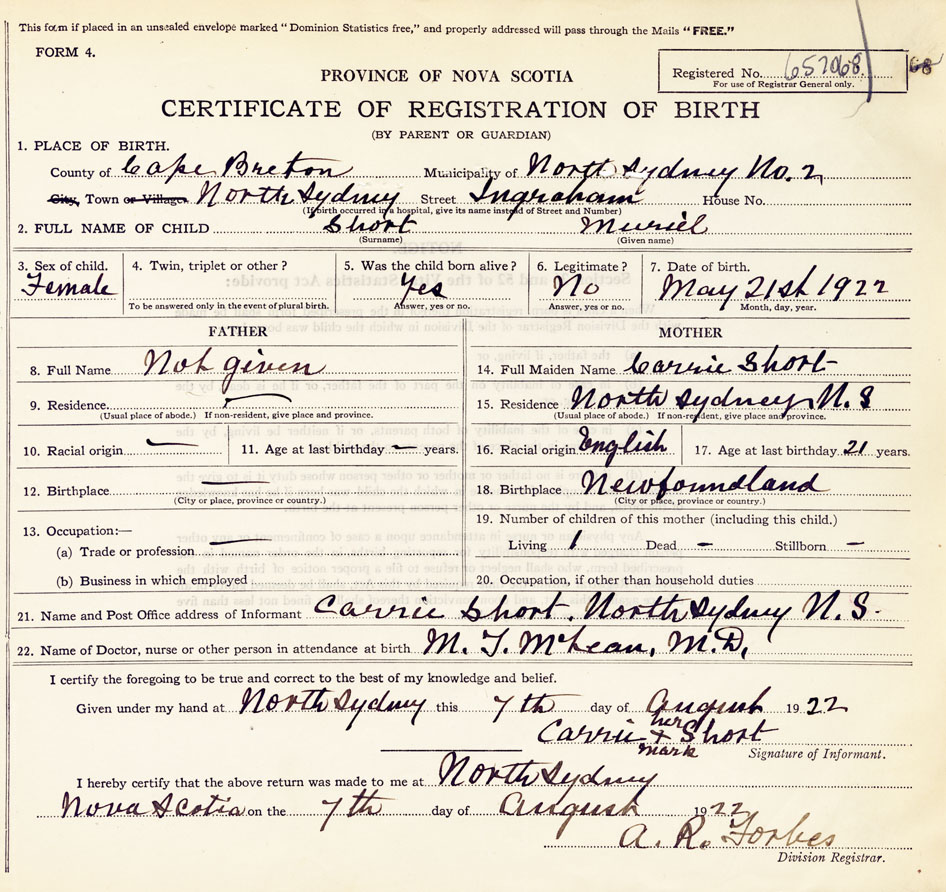 This form if placed in an unsealed envelope marked "Dominion Statistics free," and properly addressed will pass through the Mails "FREE."
FORM 4.
Registered No. 657068
68
For use of Registrar General only.
PROVINCE OF NOVA SCOTIA
CERTIFICATE OF REGISTRATION OF BIRTH
(BY PARENT OR GUARDIAN)
1. PLACE OF BIRTH.
County of Cape Breton Municipality of North Sydney No. 2
City, Town or Village North Sydney Street Ingraham House No.
(If birth occurred in a hospital, give its name instead of Street and Number)
2. FULL NAME OF CHILD Short Muriel
(Surname) (Given name)
3. Sex of child. 4. Twin, triplet or other? 5. Was the child born alive? 6. Legitimate? 7. Date of birth.
Female Yes No May 21st 1922
To be answered only in the event of plural birth. Answer, yes or no. Answer, yes or no. Month, day, year.
FATHER MOTHER
8. Full Name Not given 14. Full Maiden Name Carrie Short
9. Residence — 15. Residence North Sydney N.S
(Usual place of abode.) If non-resident, give place and province. (Usual place of abode.) If non-resident, give place and province.
10. Racial origin — 11. Age at last birthday — years. 16. Racial origin English 17. Age at last birthday 21 years.
12. Birthplace — 18. Birthplace Newfoundland
(City or place, province or country.) (City or place, province or country.)
13. Occupation:— 19. Number of children of this mother (including this child.)
(a) Trade or profession — Living 1 Dead — Stillborn —
(b) Business in which employed 20. Occupation, if other than household duties
21. Name and Post Office address of Informant Carrie Short. North Sydney N.S.
22. Name of Doctor, nurse or other person in attendance at birth M. T. McLean, M.D,
I certify the foregoing to be true and correct to the best of my knowledge and belief.
Given under my hand at North Sydney this 7th day of August 1922
Carrie her + mark Short
Signature of Informant.
I hereby certify that the above return was made to me at North Sydney
Nova Scotia on the 7th day of August 1922
A. R. Forbes
Division Registrar.